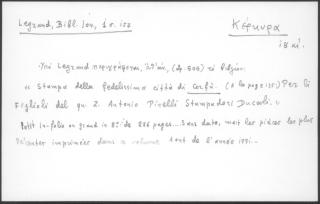 Legrand, Bibl. Ion, 1 σ. 152
Κέρκυρα
18 αἰ.
Ὑπό Legrand περιγράφεται, (ἀρ. 500) τό βιβλίον
« Stampa della fedelissima città di Corfù. (Per li
Figlioli del qu. Z. Antonio Pinelli Stampadori Ducali. »
Petit in-folio ou grand in 8° de 286 pages... Sans date, mais les pièces les plus
récentes imprimées dans ce volume sont de l'année